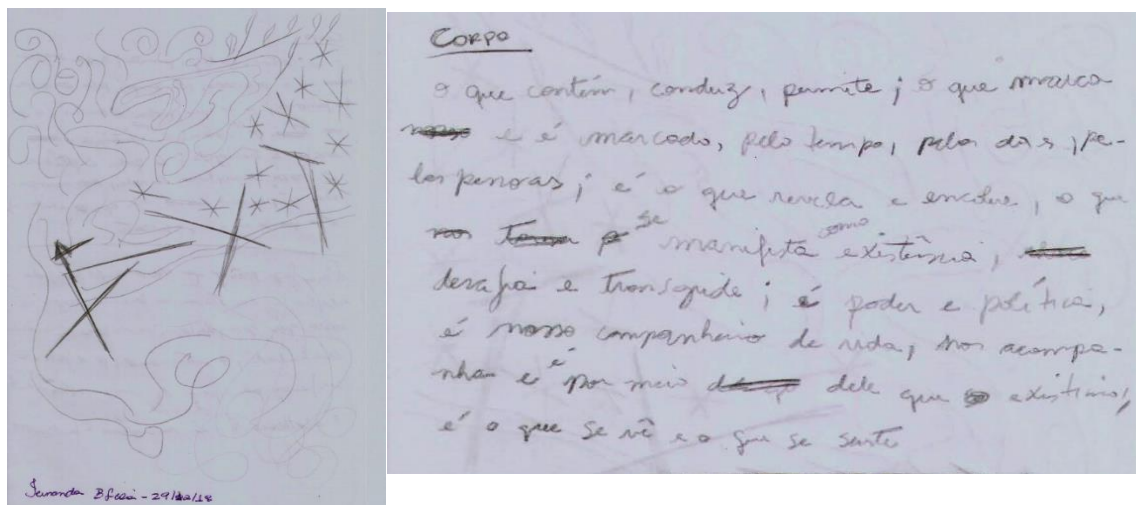 CORPO
o que contém, conduz, permite; o que marca
e é marcado, pelo tempo, pelas dores, pe-
las pessoas; é o que revela e encobre, o que
se manifesta como existência,
desafia e transgride; é poder e política,
é nosso companheiro de vida, nos acompa-
nha e é por meio dele que existimos,
é o que se vê e o que se sente
Fernanda - 29/